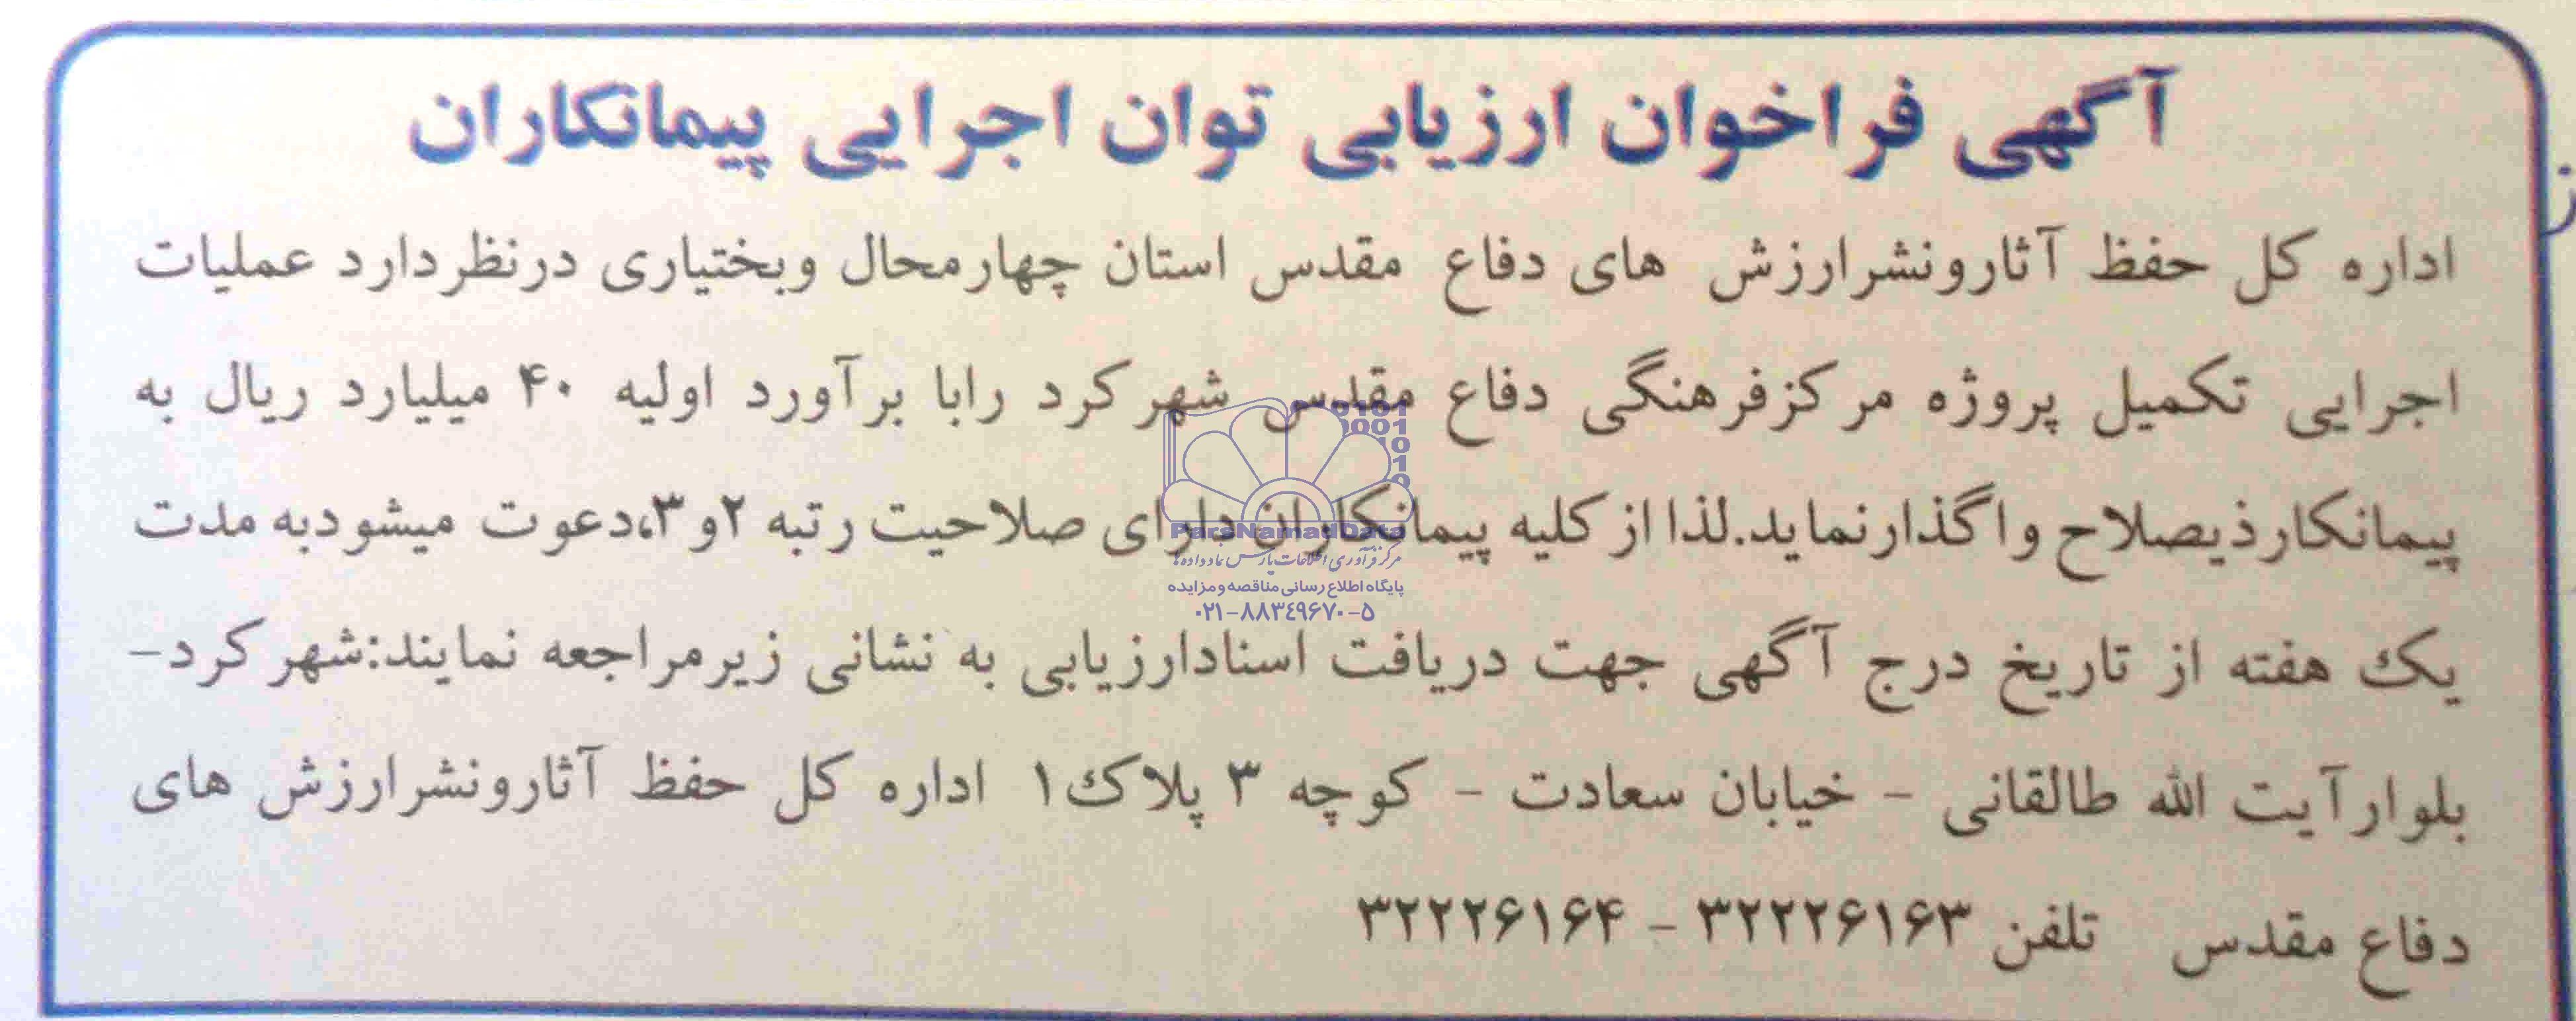 آگهی فراخوان ارزیابی توان اجرایی پیمانکاران
اداره کل حفظ آثارونشرارزش های دفاع مقدس استان چهارمحال وبختیاری درنظردارد عملیات
اجرایی تکمیل پروژه مرکزفرهنگی دفاع مقدس شهرکرد رابا برآورد اولیه ۴۰ میلیارد ریال به
پیمانکارذیصلاح واگذارنماید.لذا از کلیه پیمانکاران دارای صلاحیت رتبه ۲و۳،دعوت میشودبه مدت
یک هفته از تاریخ درج آگهی جهت دریافت اسنادارزیابی به نشانی زیرمراجعه نمایند:شهرکرد-
بلوارآیت الله طالقانی - خیابان سعادت - کوچه ۳ پلاک۱ اداره کل حفظ آثارونشرارزش های
دفاع مقدس تلفن ۳۲۲۲۶۱۶۳ - ۳۲۲۲۶۱۶۴
0101
0001
10
ParsNamadData
مرکز فرآوری اطلاعات پارس نماد داده ها
پایگاه اطلاع رسانی مناقصه و مزایده
۰۲۱-۸۸۳۴۹۶۷۰-۵